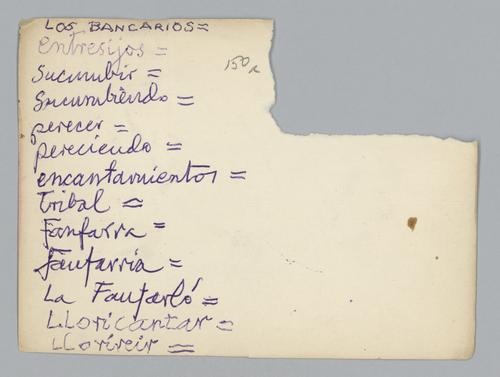 LOS BANCARIOS=
entresijos =
150
Sucumbir =
Sucumbiendo =
perecer =
pereciendo =
encantamientos =
Tribal =
Fanfarra =
Fanfarria =
La Fanfarló =
LLoricantar =
LLorireir =